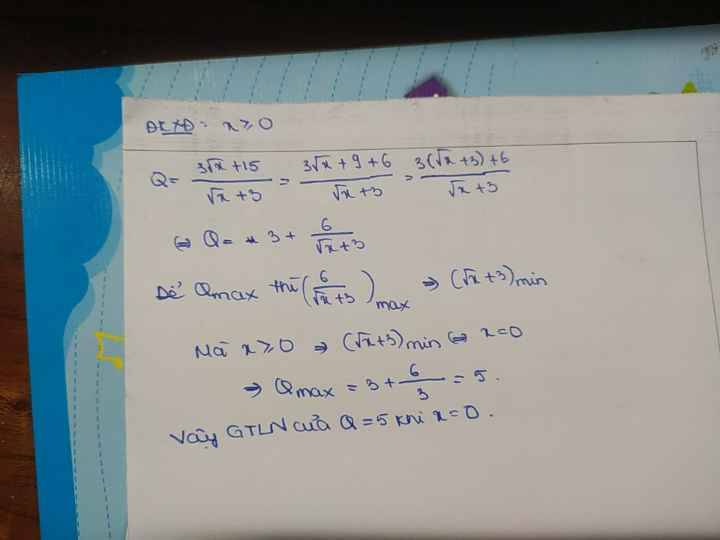 ĐKXĐ: x ≥ 0
Q = (3√x + 15)/(√x + 3) = (3√x + 9 + 6)/(√x + 3) = (3(√x + 3) + 6)/(√x + 3)
⇔ Q = 3 + 6/(√x + 3)
Để Qmax thì (6/(√x + 3))max ⇒ (√x + 3)min
Mà x ≥ 0 ⇒ (√x + 3)min ⇔ x = 0
⇒ Qmax = 3 + 6/3 = 5.
Vậy GTLN của Q = 5 khi x = 0.